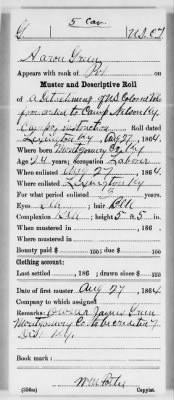 5 Cav.
G U.S.C.T.
Aaron Green
Appears with rank of Pvt on
Muster and Descriptive Roll
of a Detachment of U.S. Colored Vols
forwarded to Camp Nelson Ky
for instruction Roll dated
Lexington Ky Aug 27, 1864.
Where born Montgomery Co Ky
Age 24 years; occupation Laborer
When enlisted Aug 27, 1864.
Where enlisted Lexington Ky
For what period enlisted 3 years.
Eyes Blk; hair Blk
Complexion Blk; height 5 ft. 5 in.
When mustered in , 186 .
Where mustered in
Bounty paid $ 100; due $ 100
Clothing account:
Last settled , 186 ; drawn since $ 100
Date of first muster Aug 27, 1864
Company to which assigned
Remarks: Owner James Green
Montgomery Co. to be credited 9
Dist. Ky.
Book mark:
(356a) Copyist.